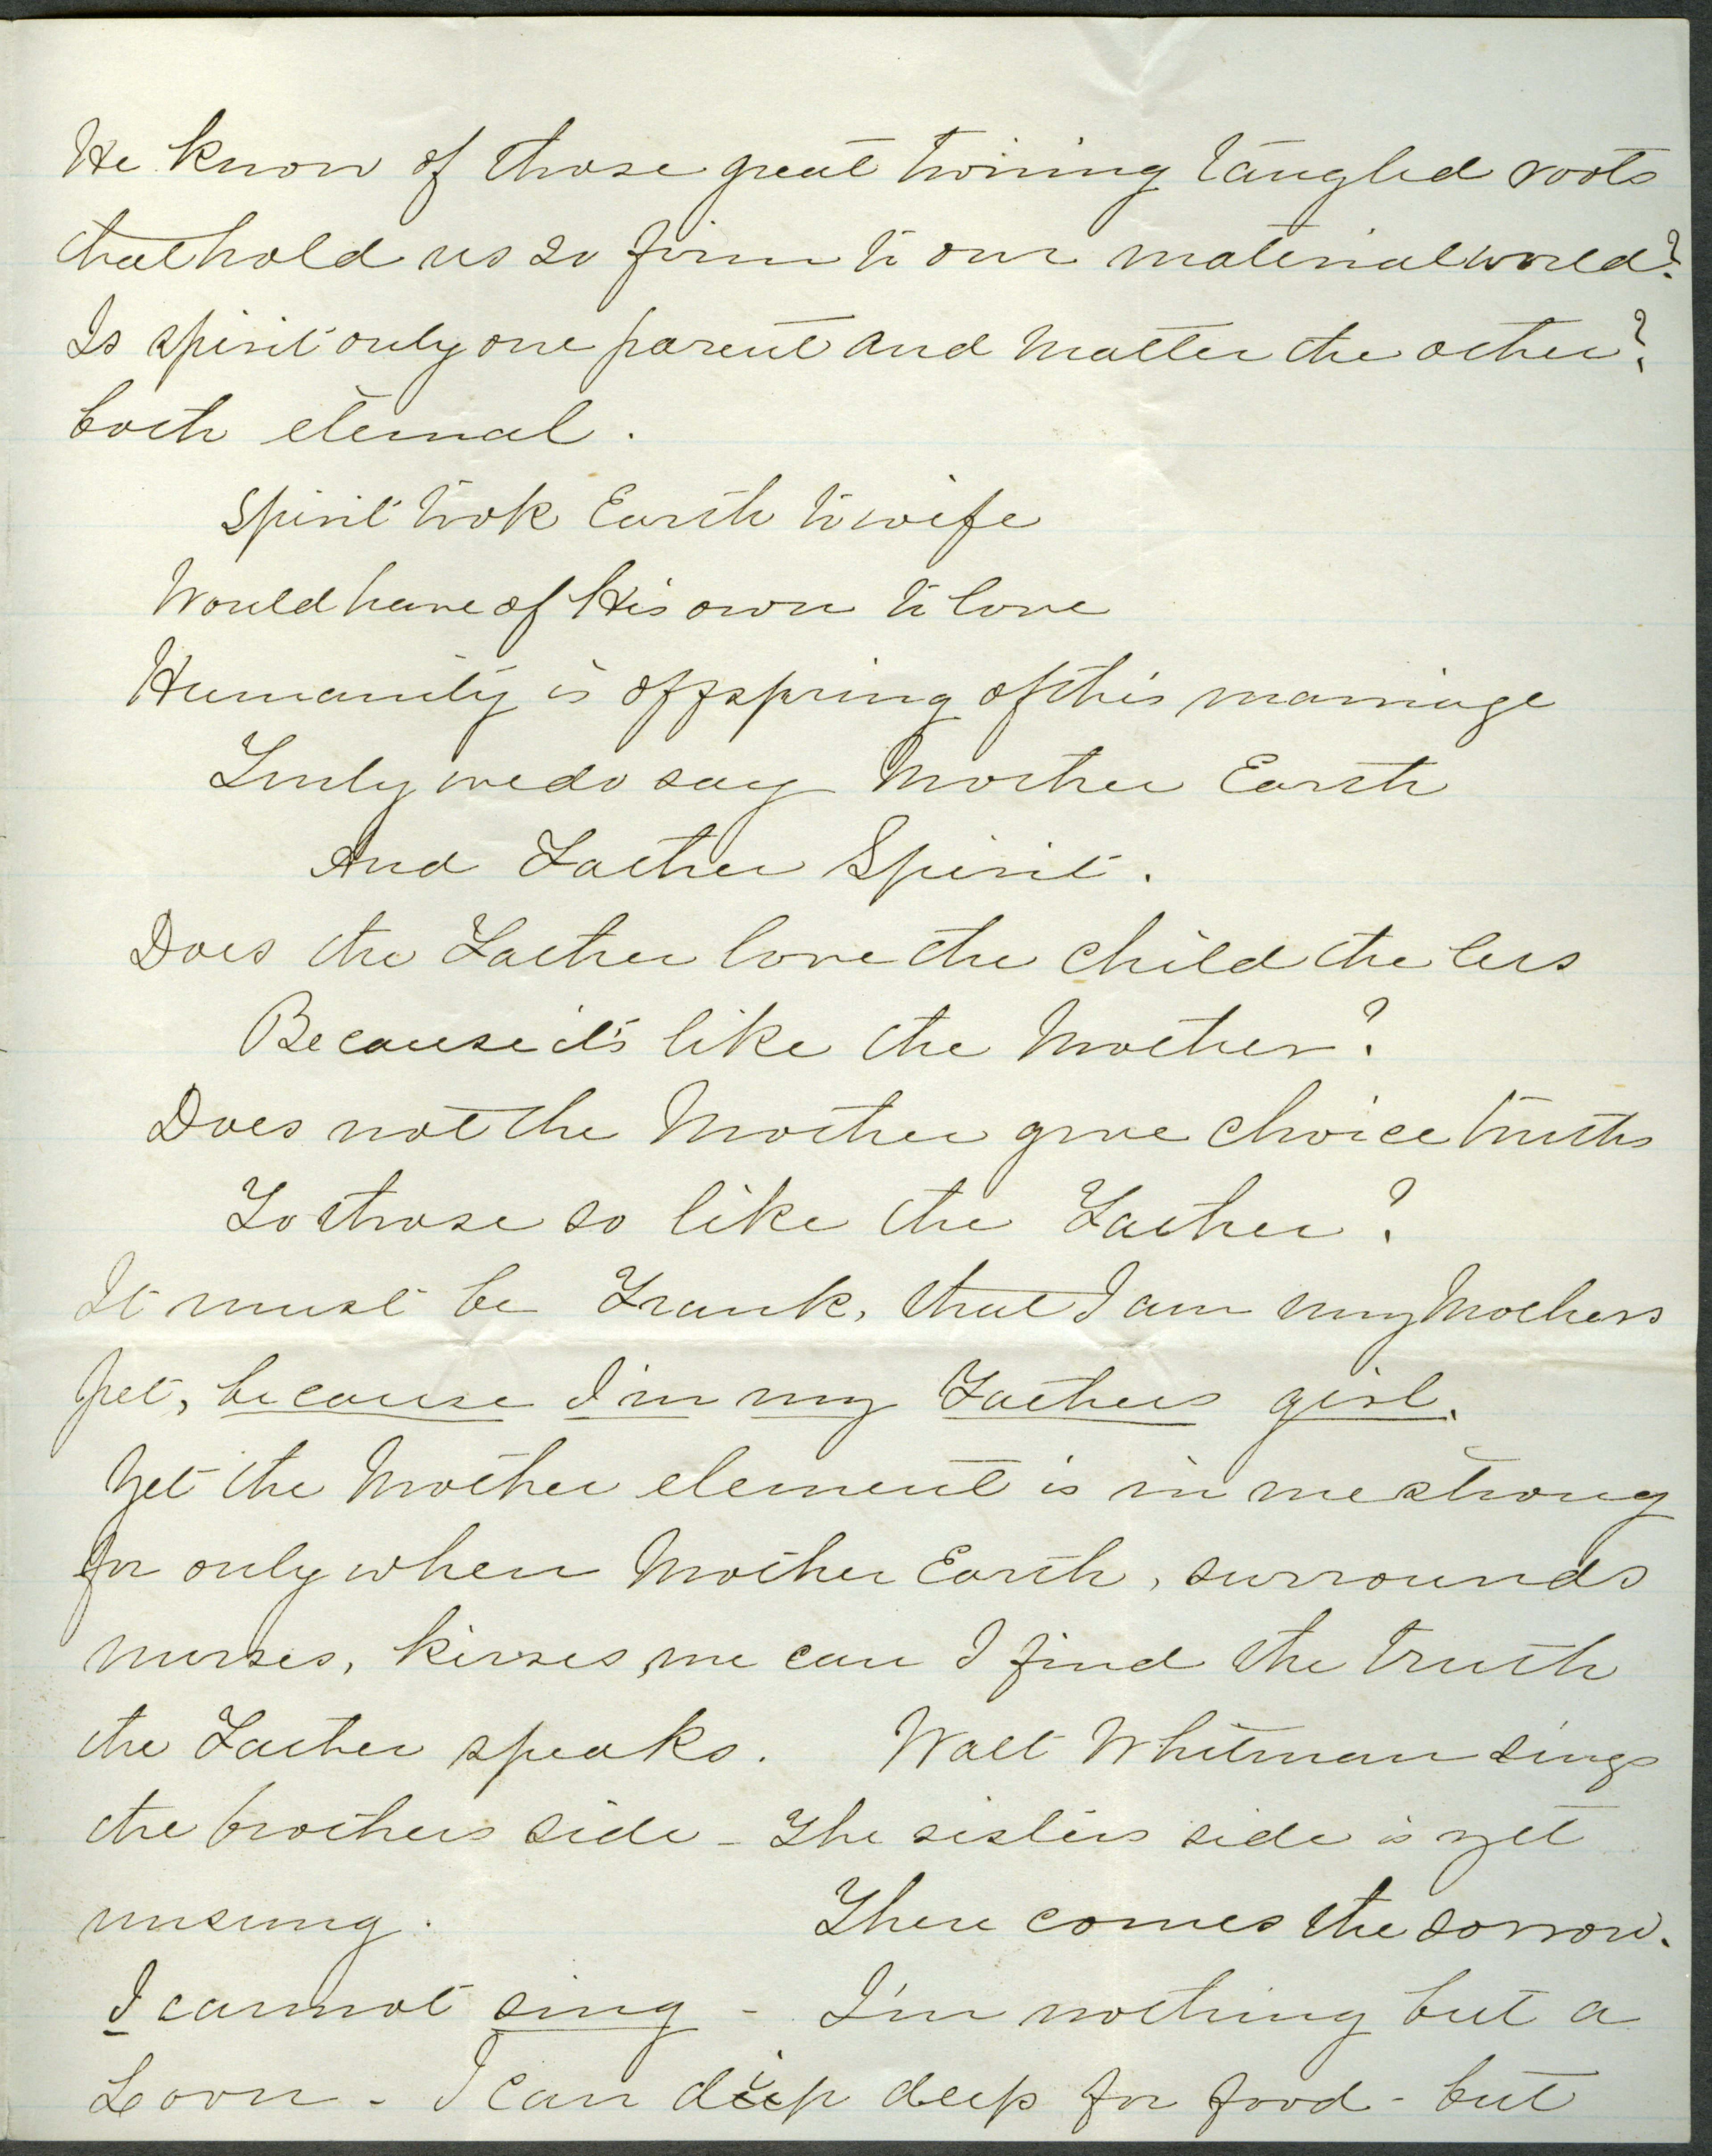 He know of those great twining tangled roots
that hold us so firm to our material world?
Is spirit only one parent and matter the other?
both eternal.
Spirit took Earth to wife
Would have of His own to love
Humanity is offspring of this marriage
Truly we do say Mother Earth
And Father Spirit.
Does the Father love the child the less
Because it's like the Mother?
Does not the Mother give choice truths
To those so like the Father?
It must be Frank, that I am my Mothers
pet, because I'm my Fathers girl.
Yet the Mother element is in me strong
for only when Mother Earth, surrounds
nurses, kisses, me can I find the truth
the Father speaks. Walt Whitman sings
the brothers side - The sisters side is yet
unsung. There comes the sorrow.
I cannot sing - I'm nothing but a
Loon - I can dip deep for food - but